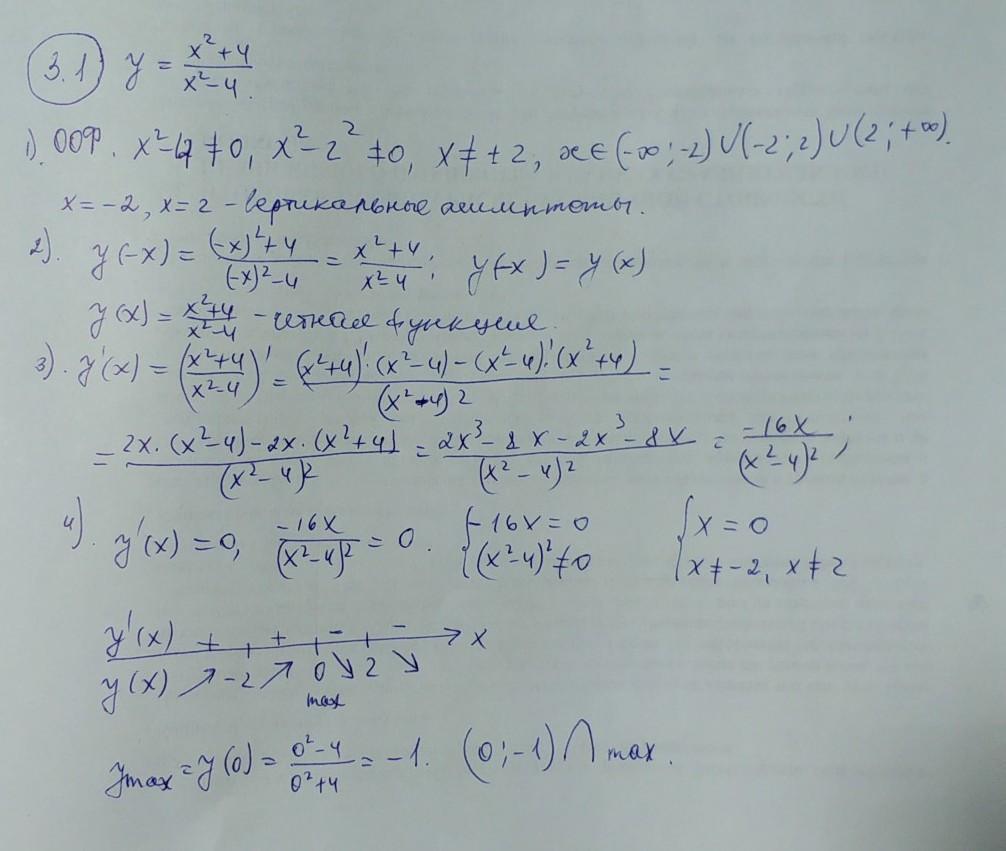 3.1 y = (x²+4)/(x²-4).
1). ООФ. x²-4 ≠ 0, x²-2² ≠ 0, x ≠ ±2, x ∈ (-∞; -2) ∪ (-2; 2) ∪ (2; +∞).
x = -2, x = 2 - вертикальные асимптоты.
2). y(-x) = ((-x)²+4)/((-x)²-4) = (x²+4)/(x²-4); y(-x) = y(x)
y(x) = (x²+4)/(x²-4) - четная функция.
3). y'(x) = ((x²+4)/(x²-4))' = ((x²+4)'·(x²-4) - (x²-4)'·(x²+4))/(x²-4)² =
= (2x·(x²-4) - 2x·(x²+4))/(x²-4)² = (2x³-8x-2x³-8x)/(x²-4)² = -16x/(x²-4)²;
4). y'(x) = 0, -16x/(x²-4)² = 0. { -16x = 0 { x = 0
(x²-4)² ≠ 0 x ≠ -2, x ≠ 2
y'(x) + + - - x
y(x) ↗ -2 ↗ 0 ↘ 2 ↘
max
ymax = y(0) = (0²-4)/(0²+4) = -1. (0; -1) ∩ max.